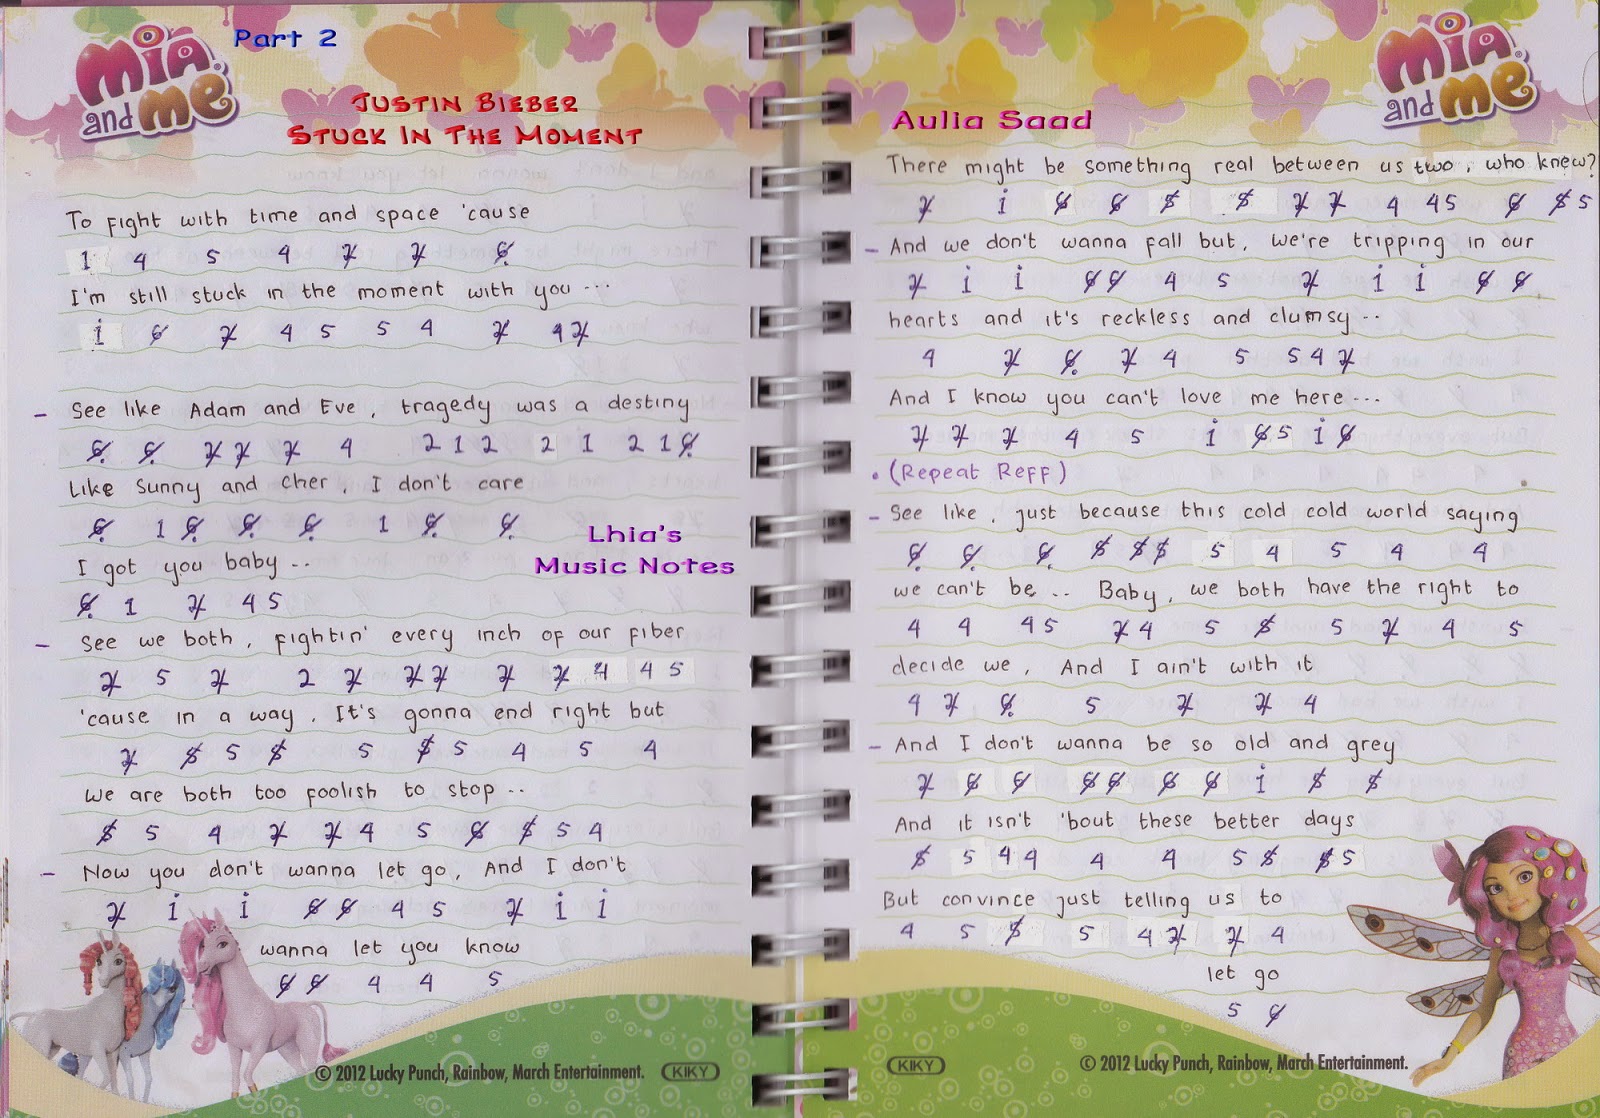 Mia and me
Part 2
JUSTIN BIEBER
STUCK IN THE MOMENT
To fight with time and space 'cause
1 4 5 4 2̸ 2̸ 6̸̣
I'm still stuck in the moment with you ...
i 6̸ 2̸ 4 5 5 4 2̸ 4 2̸
- See like Adam and Eve, tragedy was a destiny
6̸̣ 6̸̣ 2̸ 2̸ 2̸ 4 2 1 2 2 1 2 1 6̸̣
Like Sunny and Cher, I don't care
6̸̣ 1 6̸̣ 6̸̣ 6̸̣ 1 6̸̣ 6̸̣
I got you baby ..
6̸̣ 1 2̸ 4 5
Lhia's
Music Notes
- See we both, fightin' every inch of our fiber
2̸ 5 2̸ 2 2̸ 2̸ 2̸ 2̸ 2̸ 4 4 5
'cause in a way, It's gonna end right but
2̸ 5̸ 5 5̸ 5 5̸ 5 4 5 4
we are both too foolish to stop ..
5̸ 5 4 2̸ 2̸ 4 5 6̸ 5̸ 5 4
- Now you don't wanna let go, And I don't
2̸ i i 6̸ 6̸ 4 5 2̸ i i
wanna let you know
6̸ 6̸ 4 4 5
© 2012 Lucky Punch, Rainbow, March Entertainment. KIKY
Mia and me
Aulia Saad
There might be something real between us two, who knew?
2̸ i 6̸ 6̸ 5̸ 5̸ 2̸ 2̸ 4 4 5 6̸ 5̸ 5
- And we don't wanna fall but, we're tripping in our
2̸ i i 6̸ 6̸ 4 5 2̸ i i 6̸ 6̸
hearts and it's reckless and clumsy ..
4 2̸ 6̸̣ 2̸ 4 5 5 4 2̸
And I know you can't love me here ...
2̸ 2̸ 2̸ 4 5 i 6̸ 5 i 6̸
. (Repeat Reff)
- See like, just because this cold cold world saying
6̸̣ 6̸̣ 6̸̣ 5̸ 5̸ 5̸ 5 4 5 4 4
we can't be .. Baby, we both have the right to
4 4 4 5 2̸ 4 5 5̸ 5 2̸ 4 5
decide we, And I ain't with it
4 2̸ 6̸̣ 5 2̸ 2̸ 4
- And I don't wanna be so old and grey
2̸ 6̸ 6̸ 6̸ 6̸ 6̸ 6̸ i 5̸ 5̸
And it isn't 'bout these better days
5̸ 5 4 4 4 4 5 5̸ 5̸ 5
But convince just telling us to
4 5 5̸ 5 4 2̸ 2̸ 4
let go
5 6̸
KIKY © 2012 Lucky Punch, Rainbow, March Entertainment.